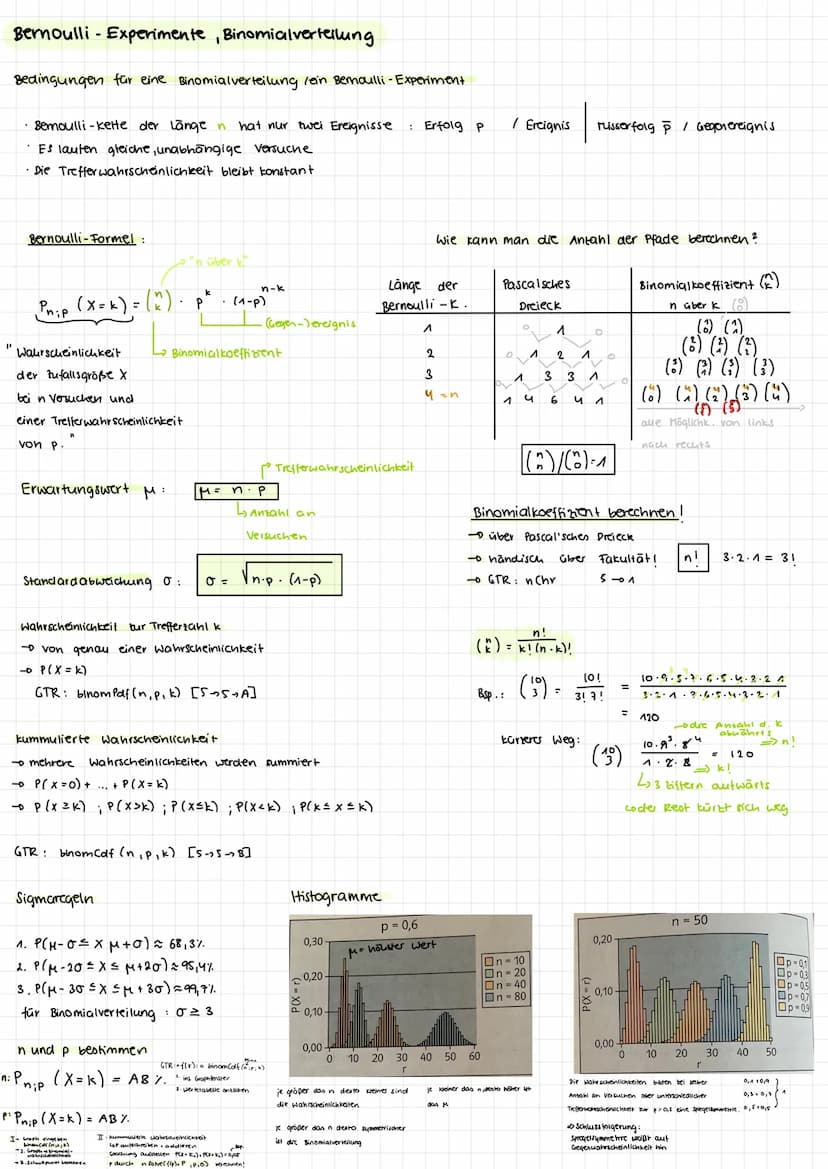 Bernoulli - Experimente, Binomialverteilung
Bedingungen für eine Binomialverteilung / ein Bernoulli-Experiment
· Bernoulli-Kette der Länge n hat nur zwei Ereignisse : Erfolg p / Ereignis | Misserfolg p̄ / Gegenereignis
· Es laufen gleiche, unabhängige Versuche
· Die Trefferwahrscheinlichkeit bleibt konstant
Bernoulli-Formel :
"n über k"
P n;p (X = k) = (n k) · p^k · (1-p)^n-k
(Gegen-)ereignis
Binomialkoeffizient
"Wahrscheinlichkeit
der Zufallsgröße X
bei n Versuchen und
einer Trefferwahrscheinlichkeit
von p."
Wie kann man die Anzahl der Pfade berechnen?
Länge der
Bernoulli-K.
Pascalsches
Dreieck
Binomialkoeffizient (n k)
n über k (0 0)
1 0 1 0 (1 0) (1 1)
2 0 1 2 1 0 (2 0) (2 1) (2 2)
3 1 3 3 1 0 (3 0) (3 1) (3 2) (3 3)
4 = n 1 4 6 4 1 (4 0) (4 1) (4 2) (4 3) (4 4)
alle Möglichk. von links
nach rechts
(n n) / (n 0) = 1
Trefferwahrscheinlichkeit
Erwartungswert μ : μ = n · p
Anzahl an
Versuchen
Standardabweichung σ : σ = √n·p·(1-p)
Binomialkoeffizient berechnen!
→ über Pascal'sches Dreieck
→ händisch über Fakultät! n! 3·2·1 = 3!
→ GTR: nCr 5→1
Wahrscheinlichkeit zur Trefferzahl k
→ von genau einer Wahrscheinlichkeit
→ P(X = k)
GTR: binomPdf(n,p,k) [5→5→A]
(n k) = n! / k!(n-k)!
Bsp.: (10 3) = 10! / 3! 7! = 10·9·8·7·6·5·4·3·2·1 / 3·2·1·7·6·5·4·3·2·1
= 120
kummulierte Wahrscheinlichkeit
→ mehrere Wahrscheinlichkeiten werden summiert
→ P(X=0) + ... + P(X=k)
→ P(X≥k) ; P(X>k) ; P(X≤k) ; P(X<k) ; P(k≤x≤k)
GTR: binomCdf(n,p,k) [5→5→B]
→ die Anzahl d. k
abwärts
⇒ n!
kürzerer Weg: (10 3) 10·9³·8⁴ / 1·2·3 = 120
⇒ k!
3 Ziffern aufwärts
→ der Rest kürzt sich weg
Sigmaregeln
1. P(μ-σ ≤ X μ+σ) ≈ 68,3%
2. P(μ-2σ ≤ X ≤ μ+2σ) ≈ 95,4%
3. P(μ-3σ ≤ X ≤ μ+3σ) ≈ 99,7%
für Binomialverteilung : σ ≥ 3
Histogramme
p = 0,6
μ = höchster Wert
P(X = r)
0,30
0,20
0,10
0,00
0 10 20 30 40 50 60
r
n = 10
n = 20
n = 40
n = 80
n = 50
P(X = r)
0,20
0,10
0,00
0 10 20 30 40 50
r
p = 0,1
p = 0,3
p = 0,5
p = 0,7
p = 0,9
n und p bestimmen
n: P n;p (X = k) = AB %.
p: P n;p (X = k) = AB %.
je größer das n desto kleiner sind
die Wahrscheinlichkeiten
je größer das n desto symmetrischer
ist die Binomialverteilung
je kleiner das n desto höher ist
das μ
Die Wahrscheinlichkeiten bilden bei selber
Anzahl an Versuchen aber unterschiedlicher
Trefferwahrscheinlichkeit zur p = 0,5 eine Spiegelsymmetrie.
→ Schlussfolgerung:
Spiegelsymmetrie weißt auf
Gegenwahrscheinlichkeit hin